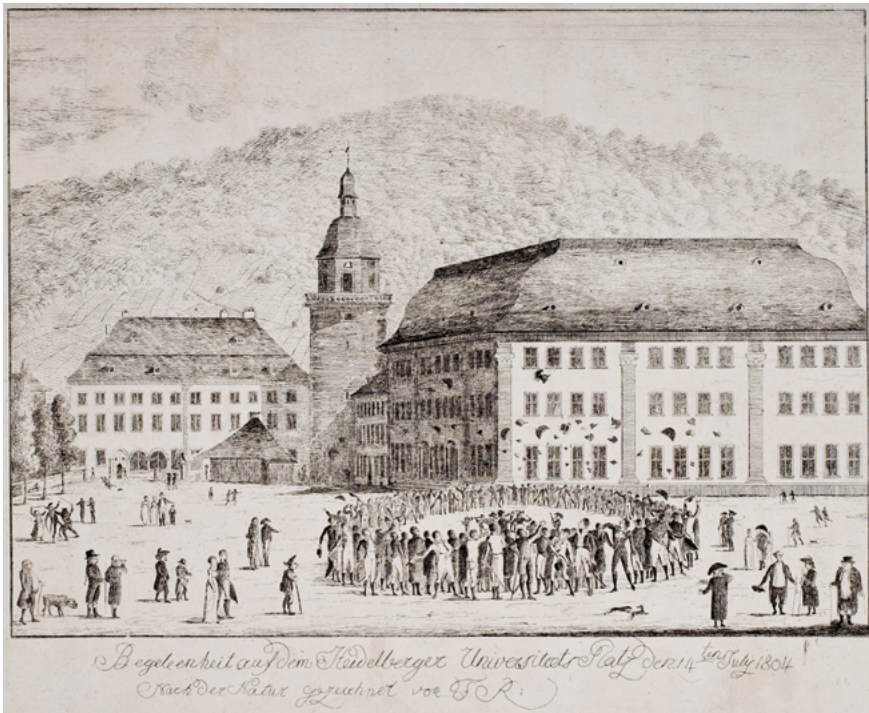 Begebenheit auf dem Heidelberger Universitäts Platz den 14ten July 1804
Nach der Natur gezeichnet von F R: